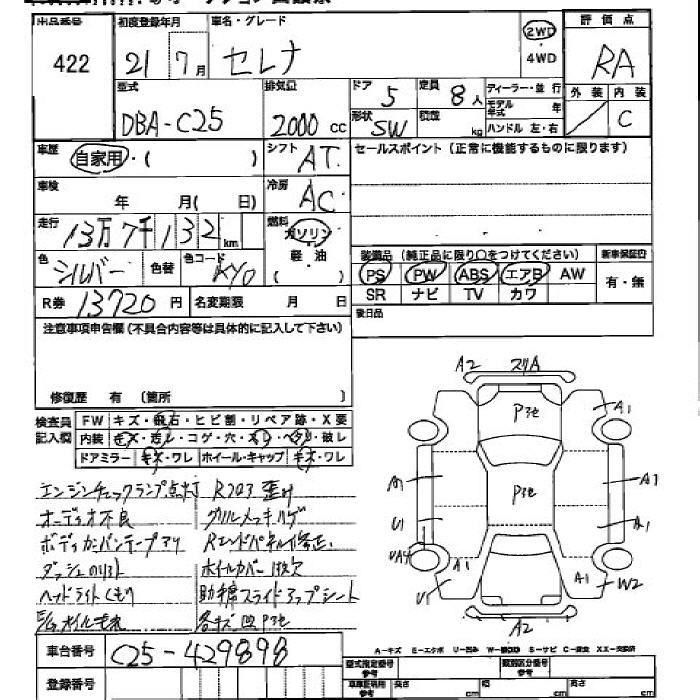 出品番号 422
初度登録年月 21 7月
車名・グレード セレナ
2WD
4WD
評価点 RA
外装 内装 C
型式 DBA-C25
排気量 2000 cc
ドア 5
定員 8人
形状 SW
積載 kg
ディーラー・並行
モデル年式 年
ハンドル 左・右
車歴 自家用・( )
シフト AT
セールスポイント(正常に機能するものに限ります)
車検 年 月( 日)
冷房 AC
走行 13万7千132km
燃料 ガソリン
軽油
( )
色 シルバー 色替 色コード KY0
装備品(純正品に限り○をつけてください)
新車保証書
PS PW ABS エアB AW
有・無
SR ナビ TV カワ
R券 13720円 名変期限 月 日
後日品
注意事項申告欄(不具合内容等は具体的に記入して下さい)
修復歴 有 (箇所 )
検査員記入欄
FW キズ・飛石・ヒビ割・リペア跡・X要
内装 キズ・汚レ・コゲ・穴・スレ・ヘタリ・破レ
ドアミラー キズ・ワレ ホイール・キャップ キズ・ワレ
エンジンチェックランプ点灯 RコアS 歪み
オーディオ不良 グリルメッキハゲ
ボディカーバンテープアリ Rエンドパネル修正
ダッシュのリフト ホイールカバー1枚欠
ヘッドライトくもり 助手席スライドアップシート
各キズ凹Pヨセ
A2 スリA
Pヨセ
A1
Pヨセ
A1
A1
U1
A1
UA4
A1
A1
W2
U1
A2
A-キズ E-エクボ U-凹み W-補修跡 S-サビ C-腐食 XX-交換済
車台番号 C25-429898
登録番号
型式指定番号 参考
類別区分番号 参考
車庫証明用 参考
長さ cm
幅 cm
高さ cm